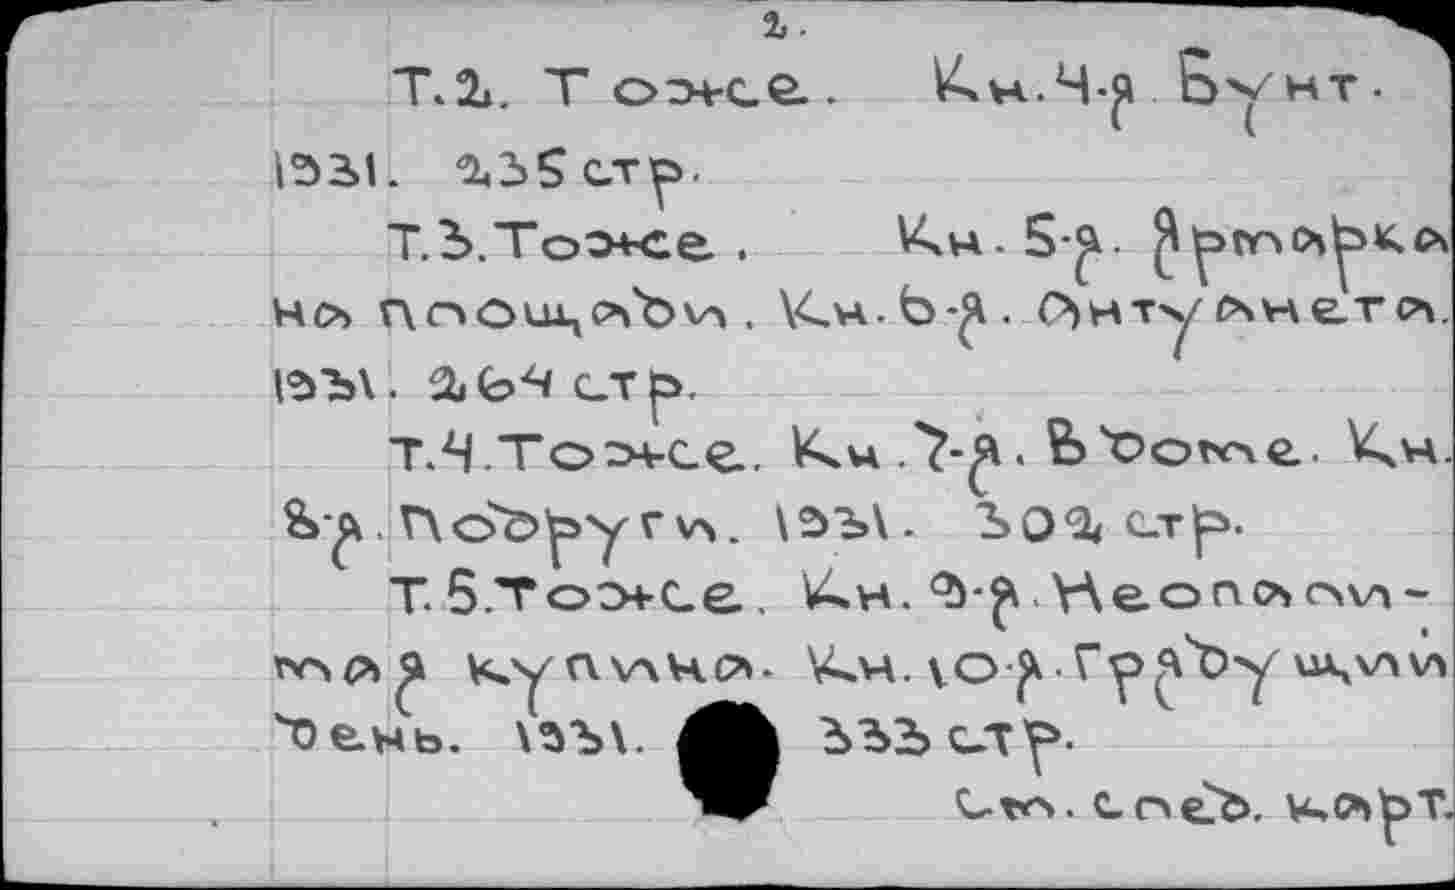 2.
Т.2. То же. Кн.4-я Бунт.
1931. 235 стр.
Т.3. То же. Кн. 5-я. Ярмарка
на площади. Кн. 6-я. Антуанета.
1931. 264 стр.
Т.4. То же. Кн. 7-я. В доме. Кн.
8-я. Подруги. 1931. 302 стр.
Т.5. То же. Кн. 9-я. Неопали-
мая купина. Кн. 10-я. Грядущий
день. 1931. 333 стр.
См. след. карт.